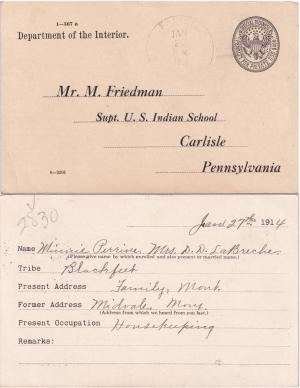 1-567 a
Department of the Interior.
JAN
Mr. M. Friedman
Supt. U. S. Indian School
Carlisle
Pennsylvania
2830
Jan 27th 1914
Name Minnie Perrine Mrs. D. D. LaBreche.
(Please give name by which enrolled and also present or married name.)
Tribe Blackfeet
Present Address Family, Mont
Former Address Midvale, Mont.
(Address from which we heard from you last.)
Present Occupation Housekeeping
Remarks: